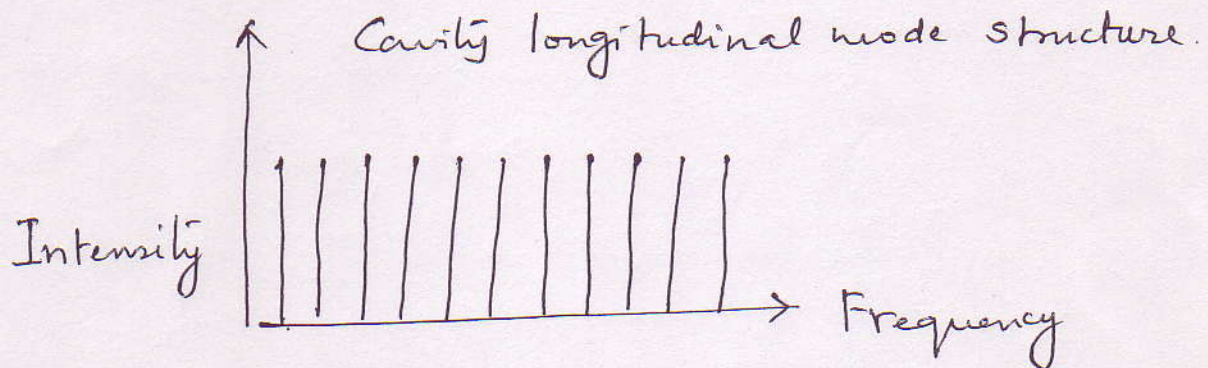 Cavity longitudinal mode structure.
Intensity
Frequency